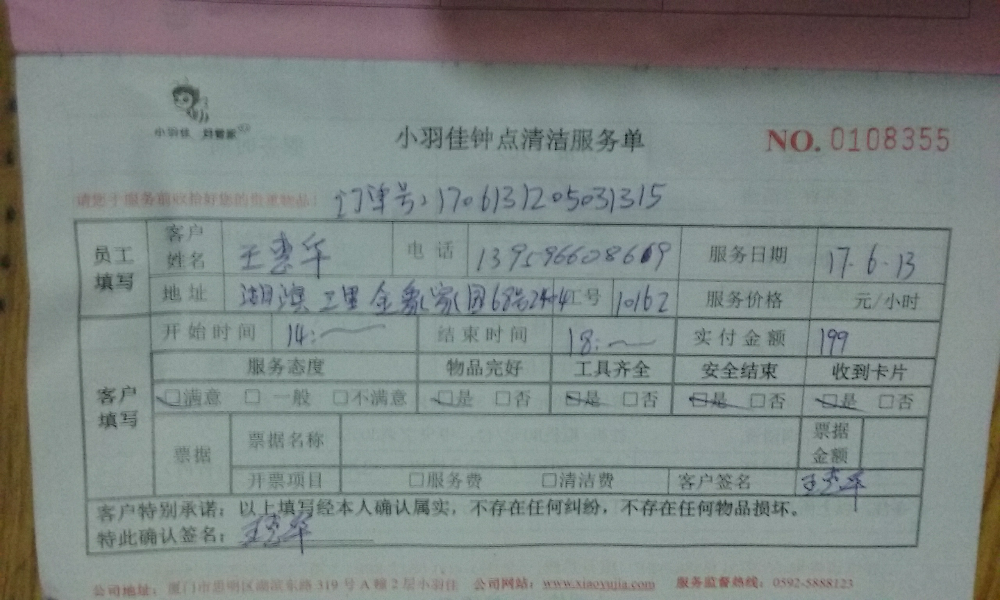 小羽佳 好管家
小羽佳钟点清洁服务单
NO. 0108355
请您于服务前收拾好您的贵重物品!
订单号:1706131205031315
员工填写
客户姓名 王惠华 电话 服务日期 17.6.13
地址 湖滨二里金象家园68号2404 工号 10162 服务价格 元/小时
客户填写
开始时间 14:— 结束时间 18:— 实付金额 199
服务态度 物品完好 工具齐全 安全结束 收到卡片
☑满意 □一般 □不满意 ☑是 □否 ☑是 □否 ☑是 □否 ☑是 □否
票据 票据名称 票据金额
开票项目 □服务费 □清洁费 客户签名 王惠华
客户特别承诺:以上填写经本人确认属实,不存在任何纠纷,不存在任何物品损坏。
特此确认签名:王惠华
公司地址:厦门市思明区湖滨东路319号A幢2层小羽佳 公司网站:www.xiaoyujia.com 服务监督热线:0592-5888123